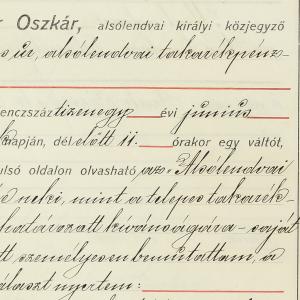 r Oszkár, alsólendvai királyi közjegyző
s úr, alsólendvai takarékpénz-
enczszáz tizenegy évi junius
napján, dél előtt 11. órakor egy váltót,
ulsó oldalon olvasható az "Alsólendvai
neki, mint a telepes takarék-
határozott kívánságára - saját
tt személyesen bemutattam, a
választ nyertem: